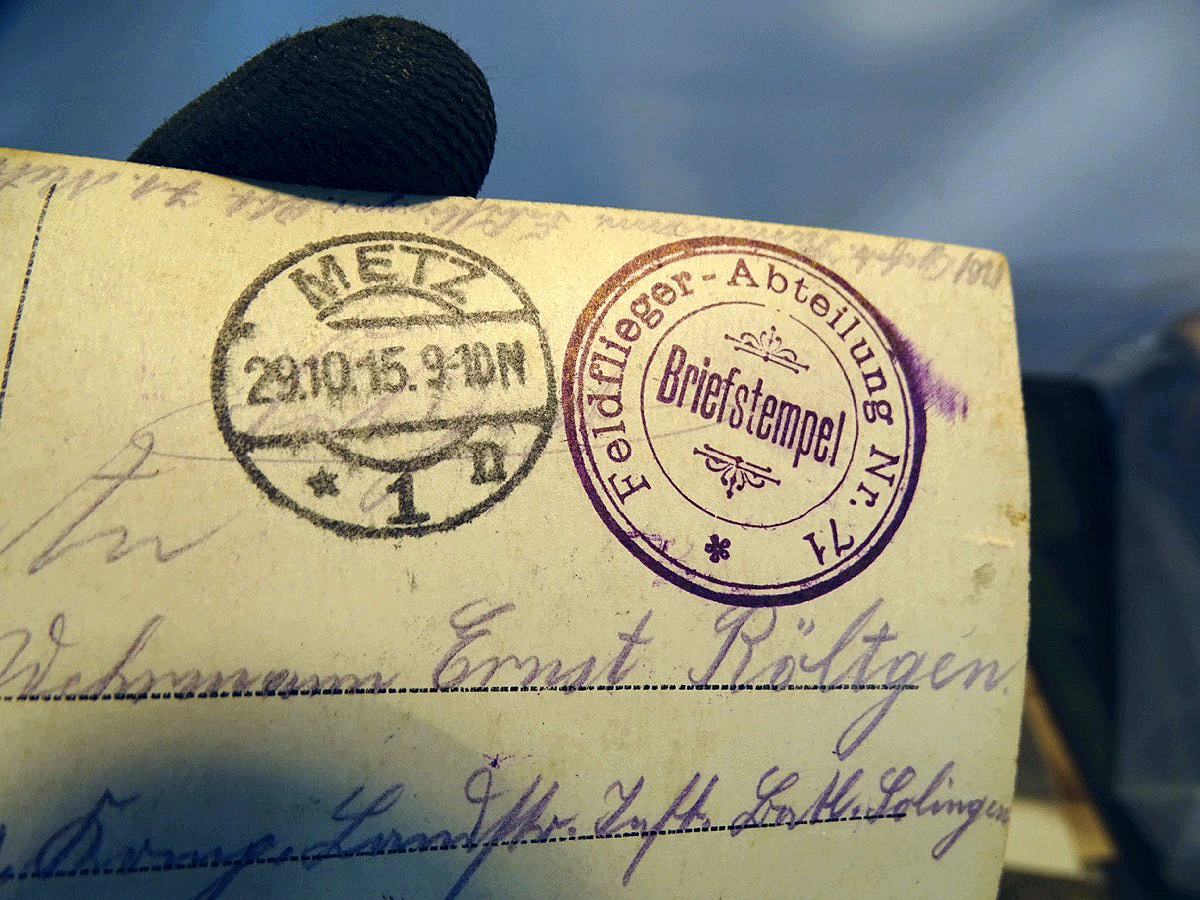 METZ
29.10.15. 9-10N
* 1 n
Feldflieger-Abteilung Nr. 71 *
Briefstempel
An
Wehrmann Ernst Röltgen.
Komp. Landstr. Inft. Batl. Solingen